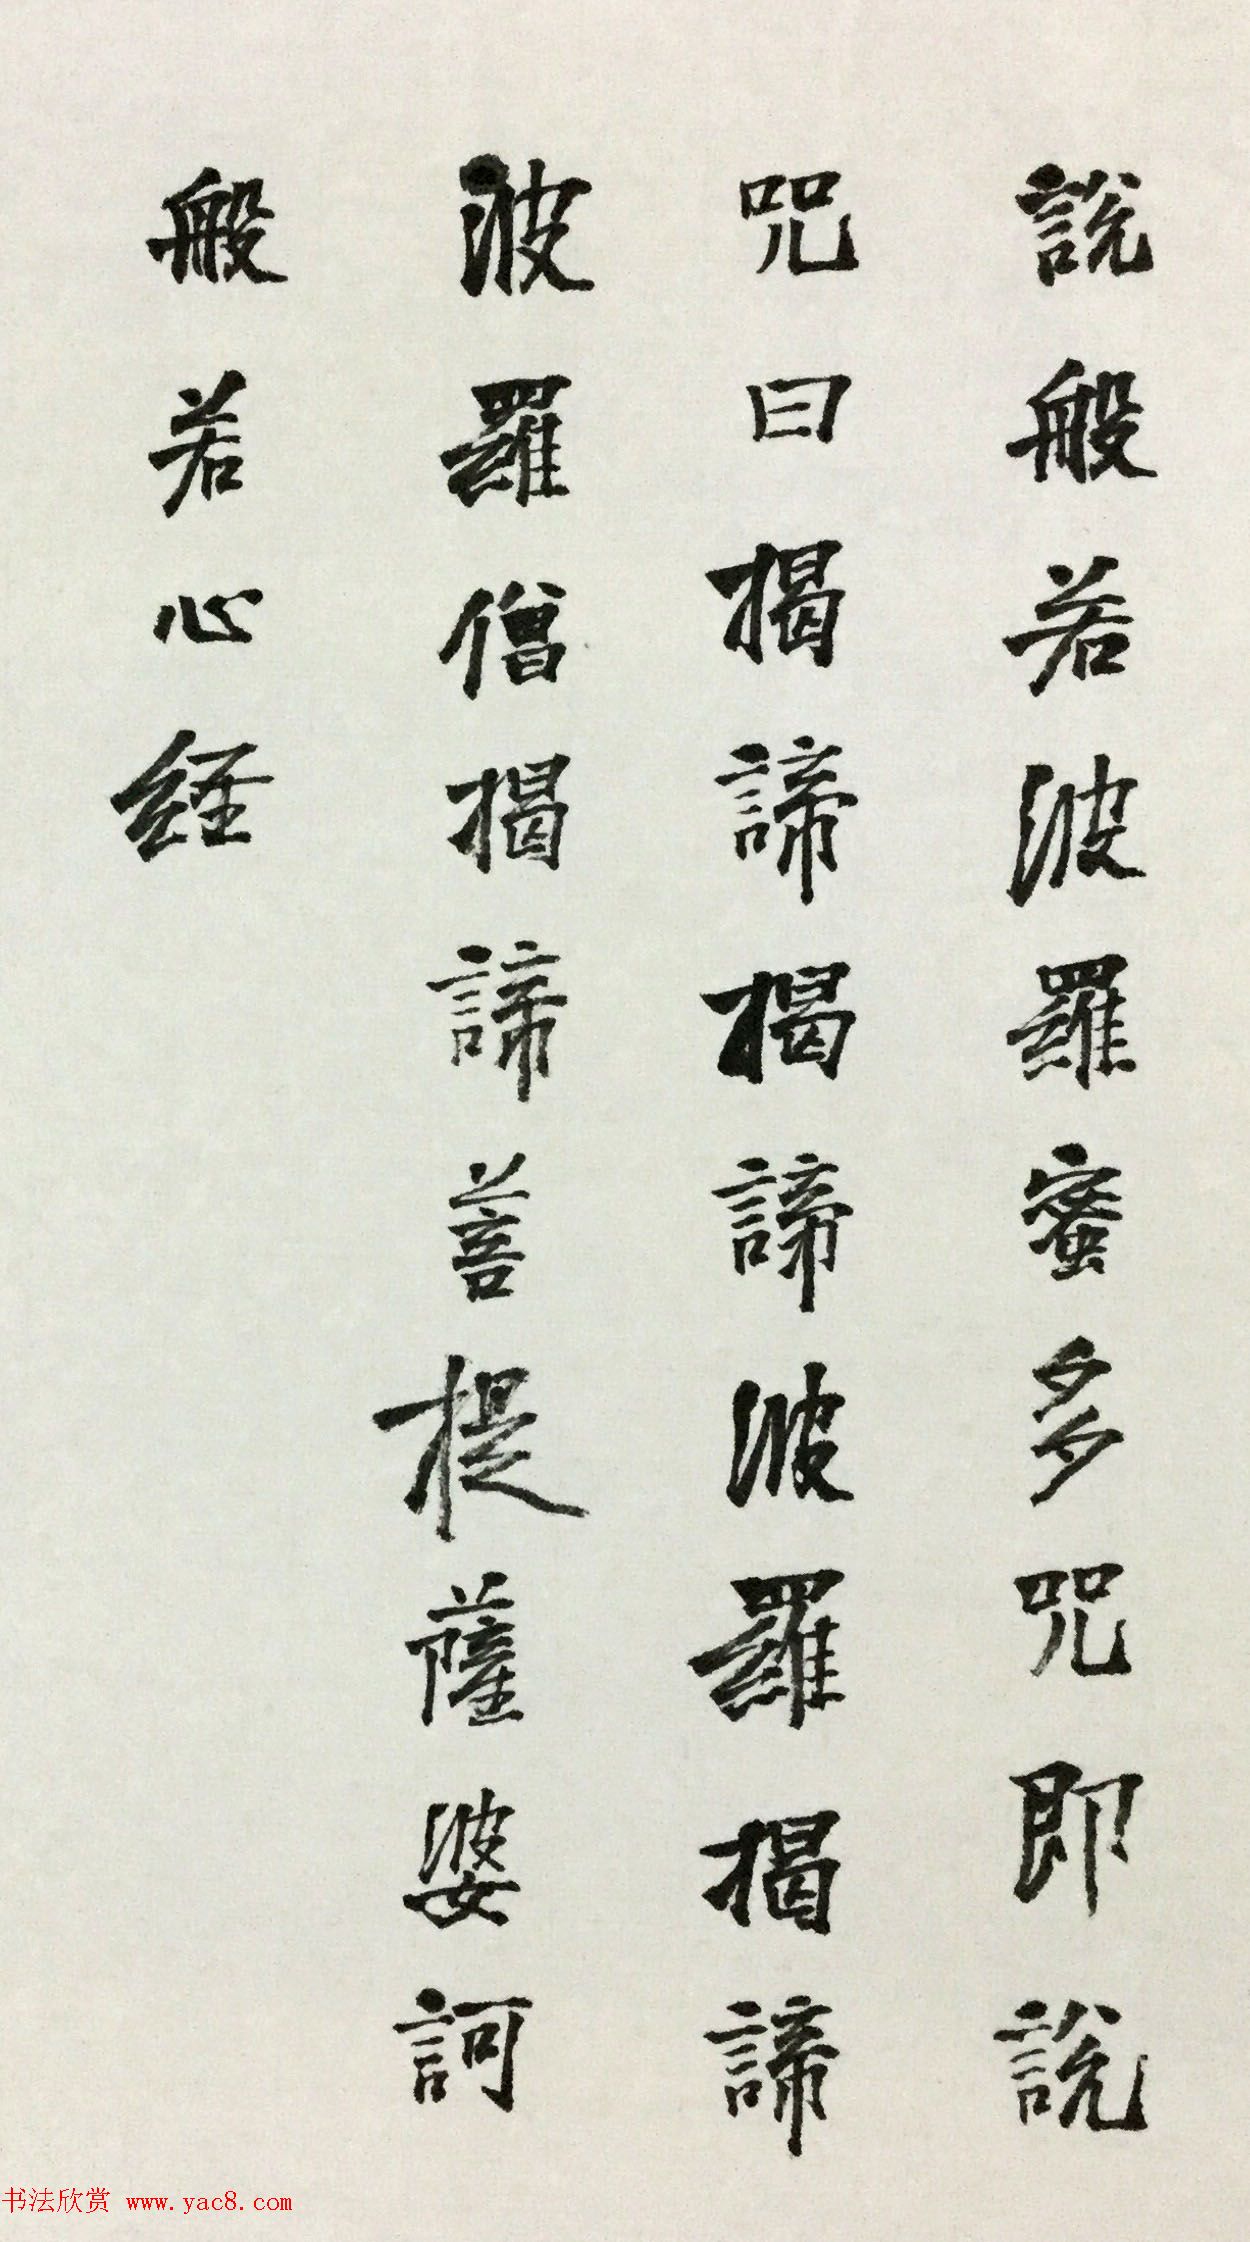 説般若波羅蜜多咒即説
咒曰揭諦揭諦波羅揭諦
波羅僧揭諦菩提薩婆訶
般若心経
书法欣赏 www.yac8.com